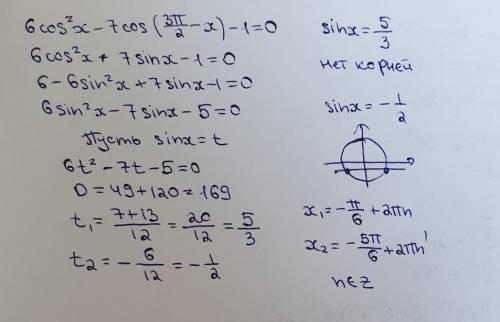 6cos²x - 7cos(3π/2 - x) - 1 = 0
6cos²x + 7sinx - 1 = 0
6 - 6sin²x + 7sinx - 1 = 0
6sin²x - 7sinx - 5 = 0
Пусть sinx = t
6t² - 7t - 5 = 0
D = 49 + 120 = 169
t₁ = 7+13/12 = 20/12 = 5/3
t₂ = -6/12 = -1/2
sinx = 5/3
нет корней
sinx = -1/2
x₁ = -π/6 + 2πn
x₂ = -5π/6 + 2πn
n∈Z